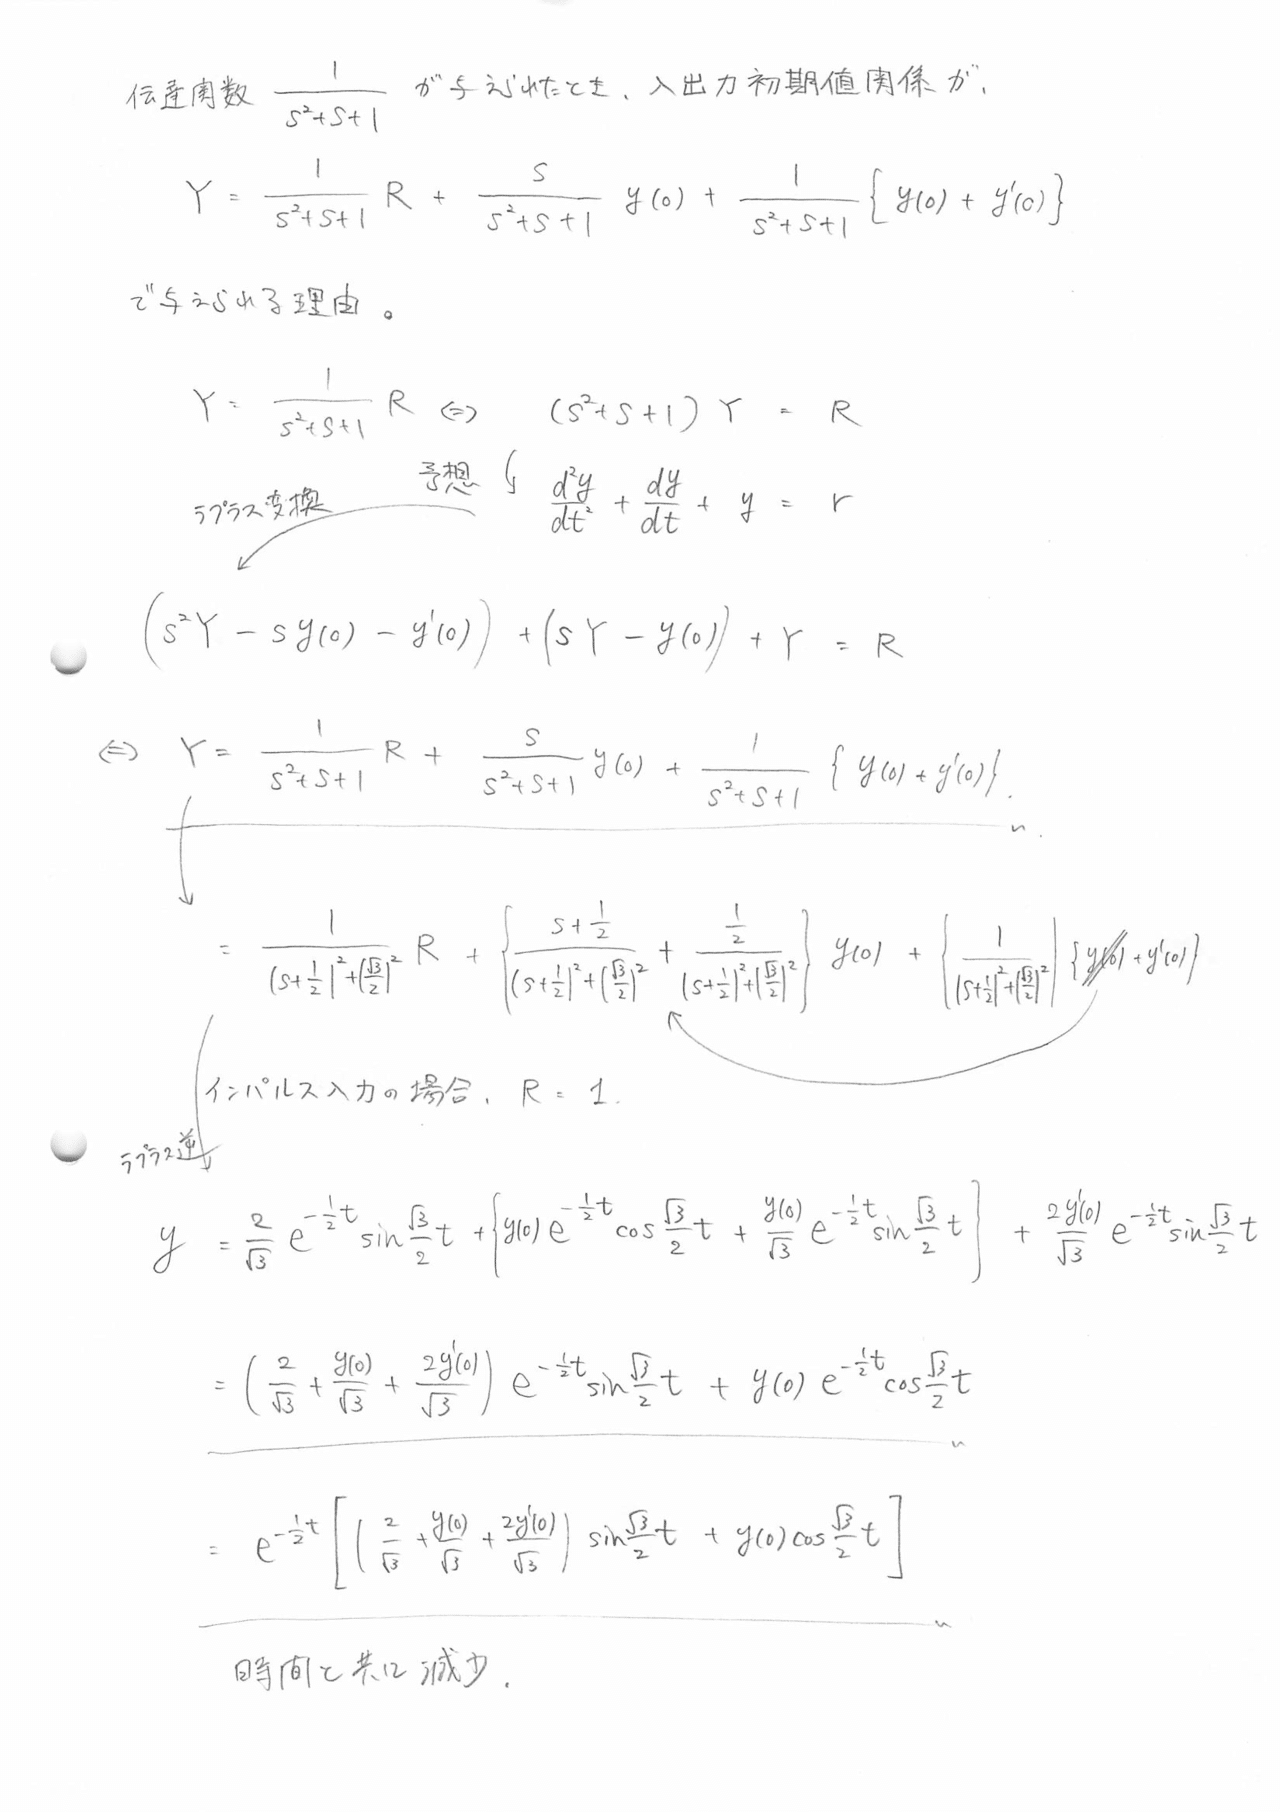 伝達関数 1/(s²+s+1) が与えられたとき、入出力初期値関係が、
Y = 1/(s²+s+1) R + s/(s²+s+1) y(0) + 1/(s²+s+1) { y(0) + y'(0) }
で与えられる理由。
Y = 1/(s²+s+1) R ⇔ (s²+s+1) Y = R
予想 d²y/dt² + dy/dt + y = r
ラプラス変換
(s²Y − sy(0) − y'(0)) + (sY − y(0)) + Y = R
⇔ Y = 1/(s²+s+1) R + s/(s²+s+1) y(0) + 1/(s²+s+1) { y(0) + y'(0) }.
= 1/((s+1/2)²+(√3/2)²) R + { (s+1/2)/((s+1/2)²+(√3/2)²) + (1/2)/((s+1/2)²+(√3/2)²) } y(0) + { 1/((s+1/2)²+(√3/2)²) } { y(0) + y'(0) }
インパルス入力の場合、R = 1.
ラプラス逆
y = 2/√3 e^(-1/2 t) sin √3/2 t + { y(0) e^(-1/2 t) cos √3/2 t + y(0)/√3 e^(-1/2 t) sin √3/2 t } + 2y'(0)/√3 e^(-1/2 t) sin √3/2 t
= ( 2/√3 + y(0)/√3 + 2y'(0)/√3 ) e^(-1/2 t) sin √3/2 t + y(0) e^(-1/2 t) cos √3/2 t
= e^(-1/2 t) [ ( 2/√3 + y(0)/√3 + 2y'(0)/√3 ) sin √3/2 t + y(0) cos √3/2 t ]
時間と共に減少.